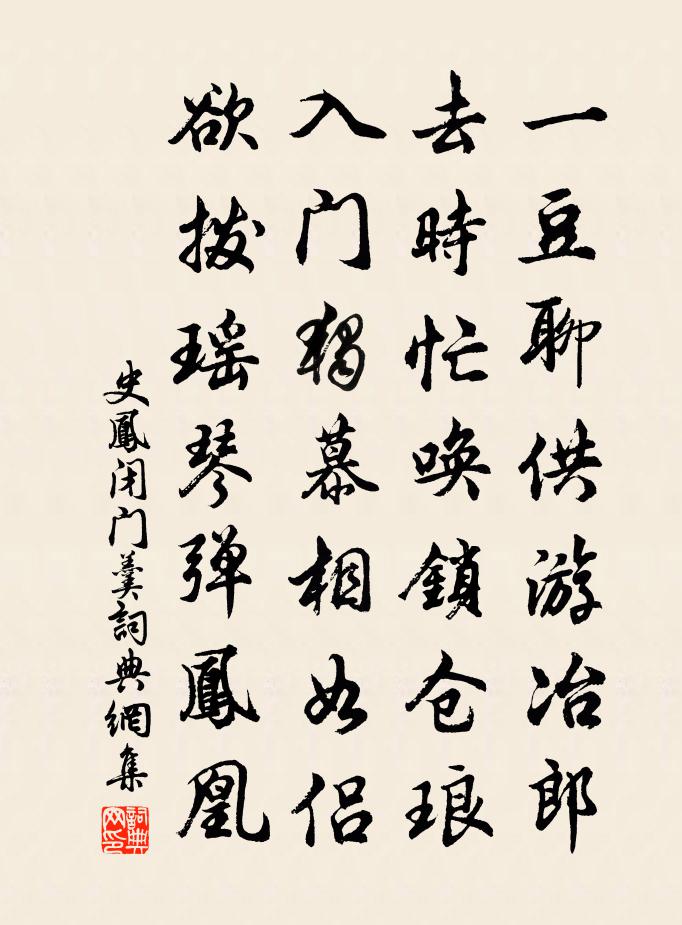 一豆聊供游冶郎
去時忙唤鎖仓琅
入门獨慕相如侣
欲拨瑶琴弹鳳凰
史鳳闭门羹詞典網集
詞典网印